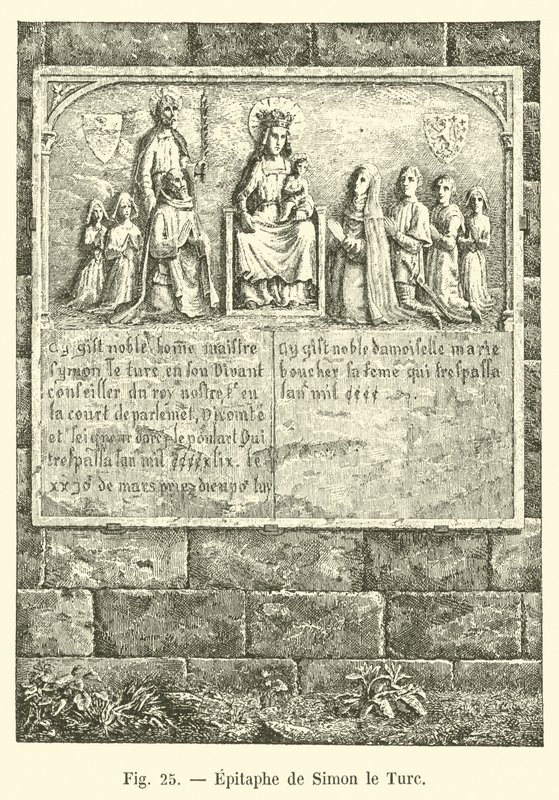 Cy gist noble home maistre
symon le turc en son vivant
conseiller du roy nostre sr en
la court de parlemet, vicomte
et seigneur le ponsart qui
trespassa lan mil cccc xlix. le
de mars priez dieu po' luy
Cy gist noble damoiselle marie
boucher sa feme qui trespassa
lan mil cccc
Fig. 25. — Épitaphe de Simon le Turc.